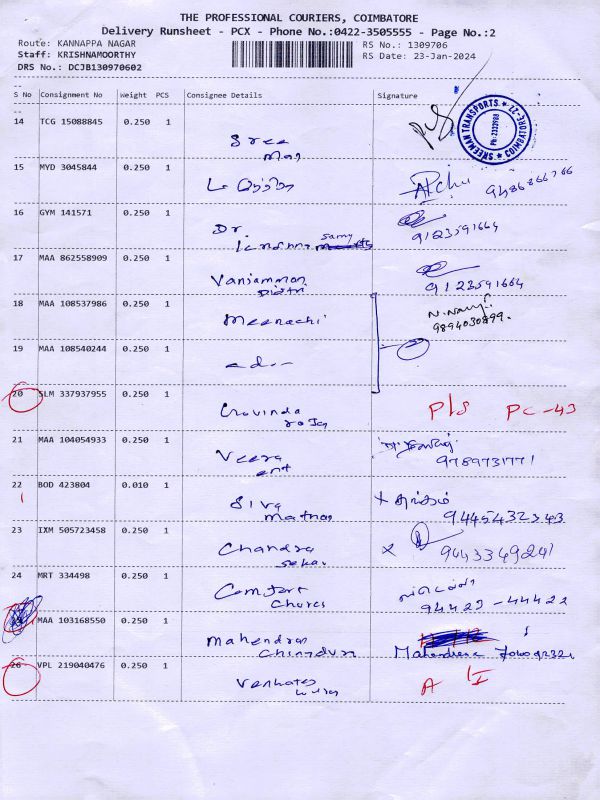 THE PROFESSIONAL COURIERS, COIMBATORE
Delivery Runsheet - PCX - Phone No.:0422-3505555 - Page No.:2
Route: KANNAPPA NAGAR
RS No.: 1309706
Staff: KRISHNAMOORTHY
RS Date: 23-Jan-2024
DRS No.: DCJB130970602
S No Consignment No Weight PCS Consignee Details Signature
14 TCG 15088845 0.250 1
Sree
SREEMAN TRANSPORTS. COIMBATORE-22
15 MYD 3045844 0.250 1
9486866766
16 GYM 141571 0.250 1
Dr.
samy
9123591664
17 MAA 862558909 0.250 1
Vaniamman
9123591664
18 MAA 108537986 0.250 1
Meenachi
9894030899.
19 MAA 108540244 0.250 1
20 SLM 337937955 0.250 1
Govinda
raja
P/S PC-43
21 MAA 104054933 0.250 1
Veera
9789731771
22 BOD 423804 0.010 1
1
Siva
x தங்கம்
9445432343
23 IXM 505723458 0.250 1
Chandra
sekar
x
9443349241
24 MRT 334498 0.250 1
Comfort
94423-44422
25 MAA 103168550 0.250 1
Mahendran
26 VPL 219040476 0.250 1
Venkates
A